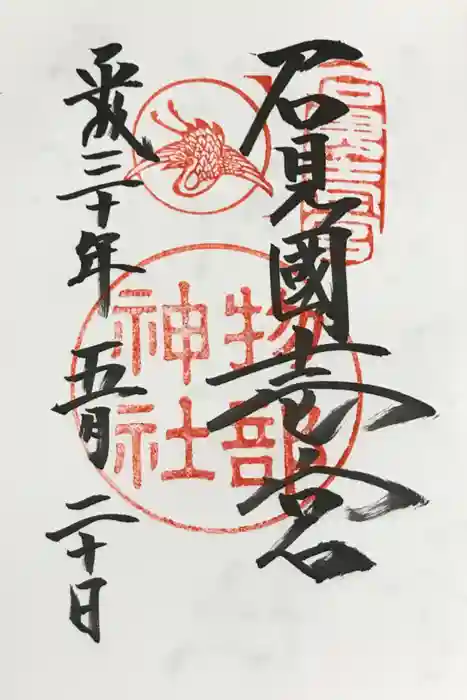 石見國壱宮
石見一宮
物部
神社
平成三十年 五月 二十日